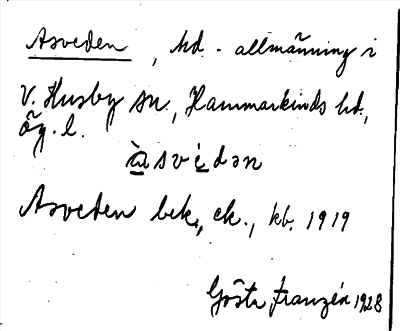 Asveden, hd.-allmänning i
V. Husby sn, Hammarkinds hd.,
Ög. l.
àsvèdən
Asveden bek., ek., kb. 1919
Gösta Franzén 1928